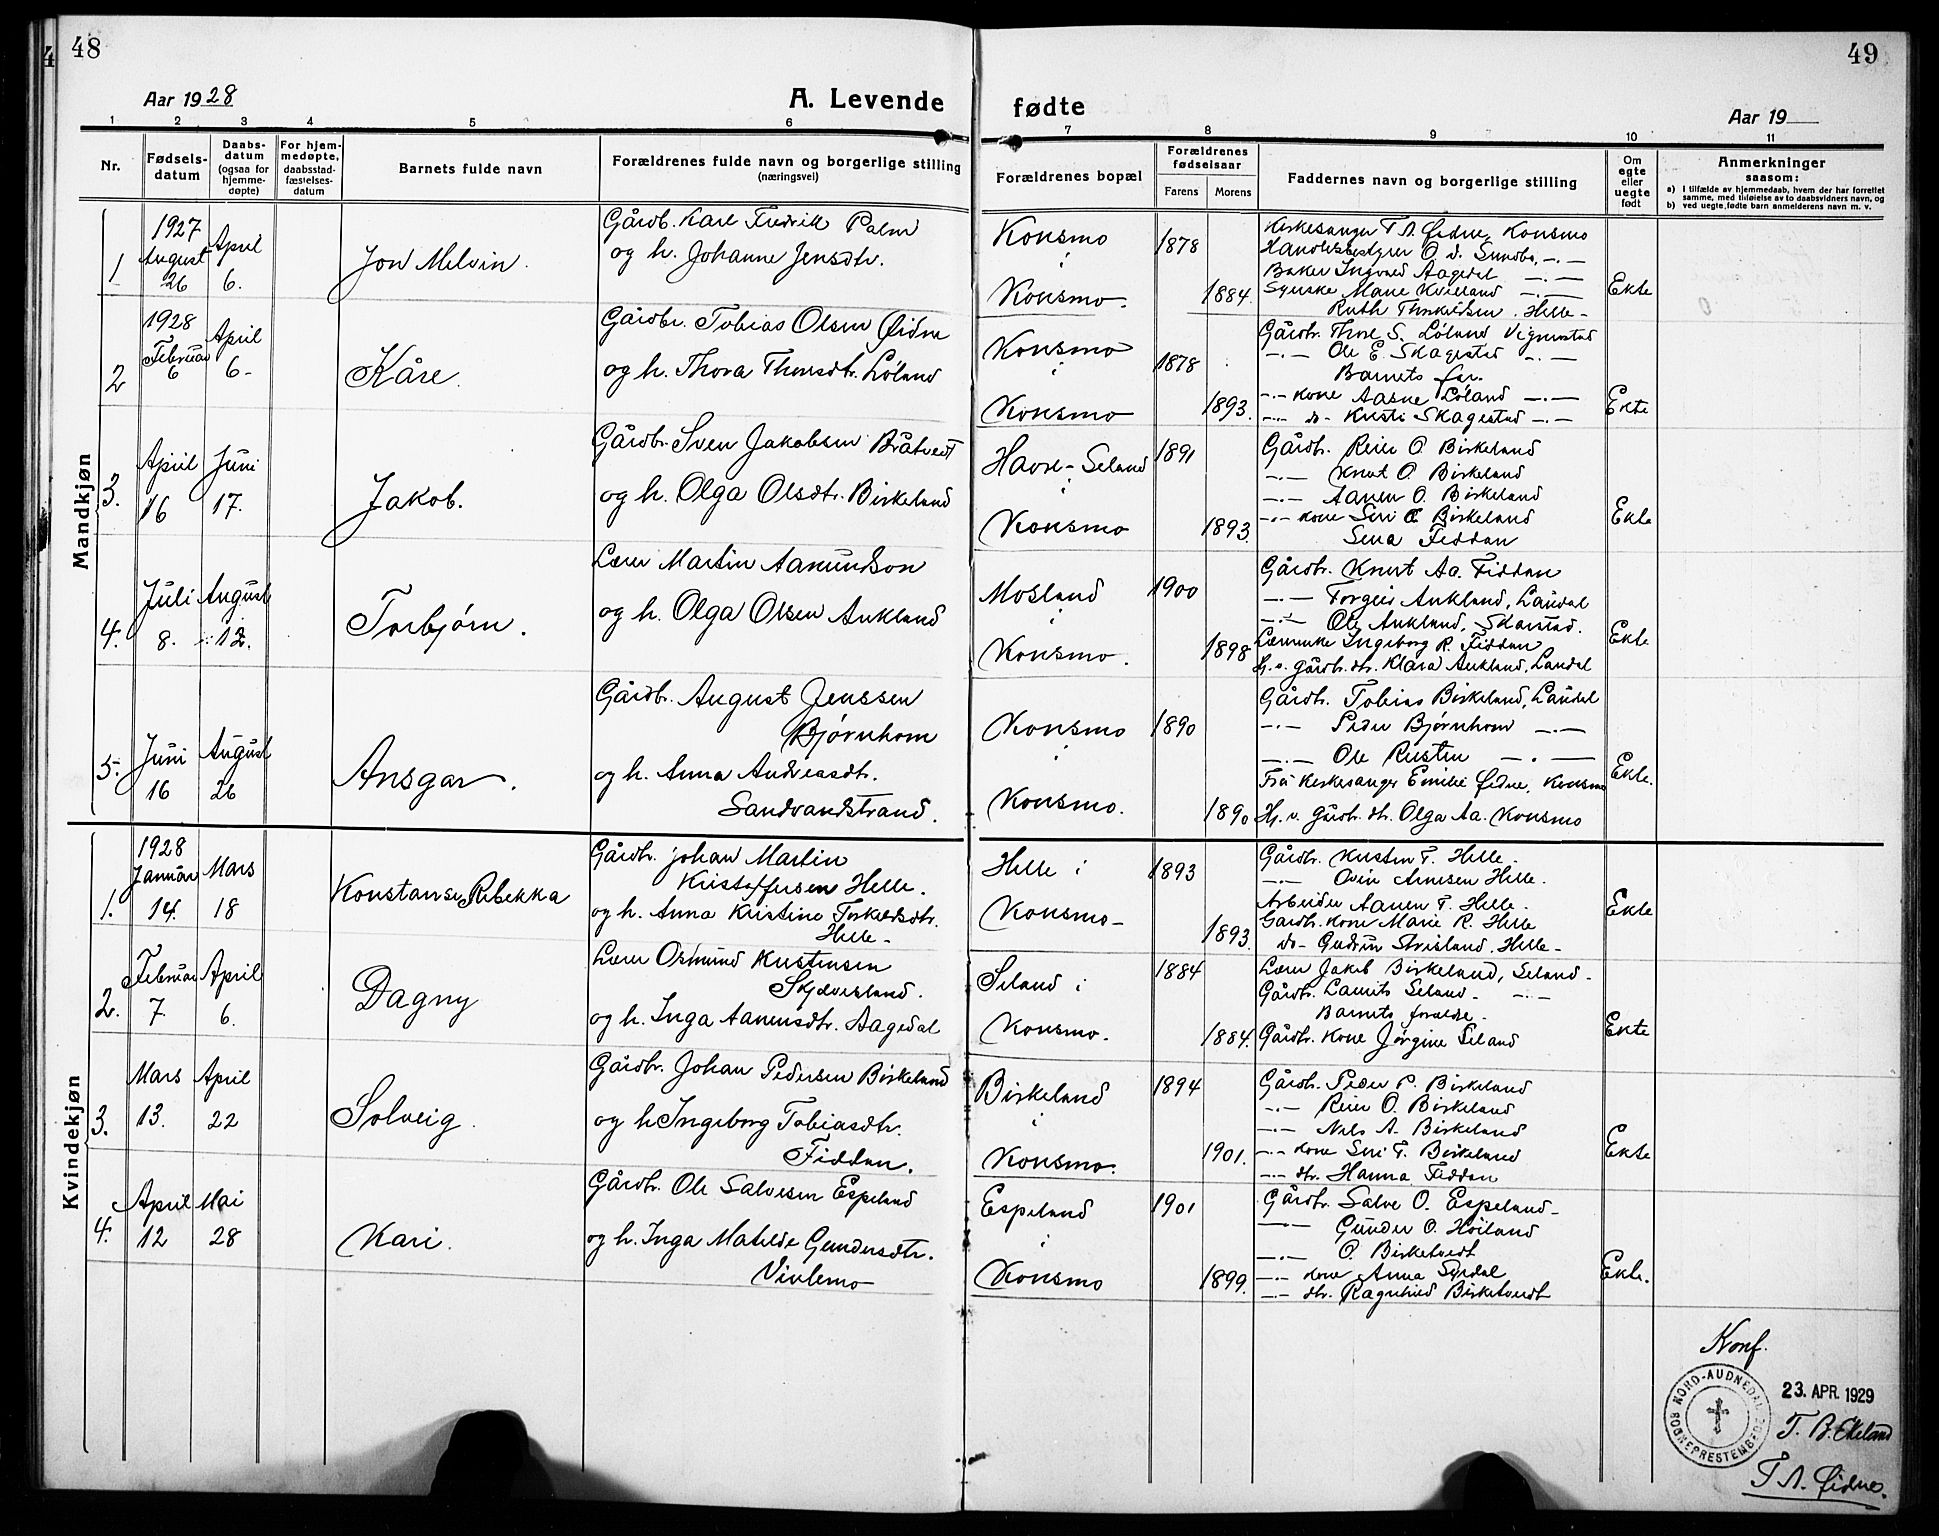 48
49
Aar 1928
A. Levende
fødte
Aar 19
1 2 3 4 5 6 7 8 9 10 11
Nr.
Fødsels-
datum
Daabs-
datum
(ogsaa for
hjemme-
døpte)
For hjem-
medøpte,
daabsstad-
fæstelses-
datum
Barnets fulde navn
Forældrenes fulde navn og borgerlige stilling
(næringsvei)
Forældrenes bopæl
Forældrenes
fødselsaar
Farens Morens
Faddernes navn og borgerlige stilling
Om
egte
eller
uegte
født
Anmerkninger
saasom:
a) I tilfælde av hjemmedaab, hvem der har forrettet
samme, med tilføielse av to daabsvidners navn, og
b) ved uegte fødte barn anmelderens navn m. v.
Mandkjøn
1
1927
August
26
April
6.
Jon Melvin.
Gårdb. Karl Fredrik Palm
og h. Johanne Jensdtr.
Konsmo
i
Konsmo.
1878
1884.
Kirkesanger T A Øidne, Konsmo
Handelsbestyrer O. d. Sundbø, -.-
Baker Ingvald Aagedal -.-
Syerske Marie Kvilland -.-
Ruth Thorkildsen. Helle-
Ekte
2
1928
Februar
6
April
6-
Kåre.
Gårdbr. Tobias Olsen Øidne
og h. Thora Thorsdtr. Løland
Konsmo
i
Konsmo
1878
1893.
Gårdbr. Thore S. Løland Vigmostad
-.- Ole E. Skagestad -.-
Barnets far.
-.- kone Aasne Løland -.-
-.- do- Kristi Skagestad -.-
Ekte
3.
April
16
Juni
17.
Jakob.
Gårdbr. Sven Jakobsen Bråtvedt
og h. Olga Olsdtr. Birkeland
Havre-Seland
i
Konsmo
1891
1893.
Gårdbr. Reier O. Birkeland
-.- Knut O. Birkeland
-.- Aanen O. Birkeland
-.- kone Siri O Birkeland
Sina Fiddan
Ekte
4.
Juli
8.
August
12.
Torbjørn.
Lærer Martin Aamundson
og h. Olga Olsen Aukland
Mosland
i
Konsmo.
1900
1898
Gårdbr. Knut Aa. Fiddan
-.- Torgeis Aukland, Laudal
-.- Ole Aukland, Skarstad.
Lærerinke Ingeborg R. Fiddan
h.v. gårdbr. dtr. Klara Aukland, Laudal
Ekte
5.
Juni
16
August
26
Ansgar.
Gårdbr. August Jenssen
Bjørnhom
og h. Anna Andreasdtr.
Sandvandstrand.
Konsmo
i
Konsmo.
1890
1890
Gårdbr. Tobias Birkeland, Laudal
-.- Peder Bjørnhom -.-
-.- Ole Rusten -.-
Fru Kirkesanger Emilie Øidne, Konsmo
Hj. v. Gårdbr. dtr. Olga Aa. Konsmo
Ekte.
Kvindekjøn
1.
1928
Januar
14.
Mars
18
Konstanse Rebekka
Gårdbr. Johan Martin
Kristoffersen Helle.
og h. Anna Kristine Torkeldsdtr.
Helle-
Helle i
Konsmo-
1893
1893.
Gårdbr. Kristen T. Helle.
-.- Ovin Arnesen Helle.
Arbeider Aanen T. Helle.
Gårdbr. kone Marie R. Helle
do- Gudrun Strisland. Helle-
Ekte
2.
Februar
7.
April
6.
Dagny
Lærer Osmund Kristensen
Skjævesland.
og h. Inga Aanensdtr. Aagedal
Seland i
Konsmo.
1884
1884.
Lærer Jakob Birkeland, Seland-
Gårdbr. Laurits Seland- -.-
Barnets forældre-
Gårdbr. kone Jørgine Seland
Ekte
3.
Mars
13.
April
22
Solveig.
Gårdbr. Johan Pedersen Birkeland
og h Ingeborg Tobiasdtr.
Fiddan.
Birkeland
i
Konsmo.
1894
1901.
Gårdbr. Peder P. Birkeland
-.- Reier O. Birkeland
-.- Nils A. Birkeland
-.- kone Siri T. Birkeland
-.- dtr. Hanna Fiddan
Ekte
4.
April
12
Mai
28
Kari.
Gårdbr. Ole Salvesen Espeland
og h. Inga Matilde Gundersdtr.
Vivlemo
Espeland
i
Konsmo
1901
1899.
Gårdbr. Salve O. Espeland-
-.- Gunder O. Høiland
-.- O. Birketvedt
-.- kone Anna Syrdal
-.- dtr. Ragnhild Birketvedt
Ekte.
Konf.
NORD-AUDNEDAL SOGNEPRESTEMBEDE
23. APR. 1929
T. B. Ekeland
T A. Øidne.